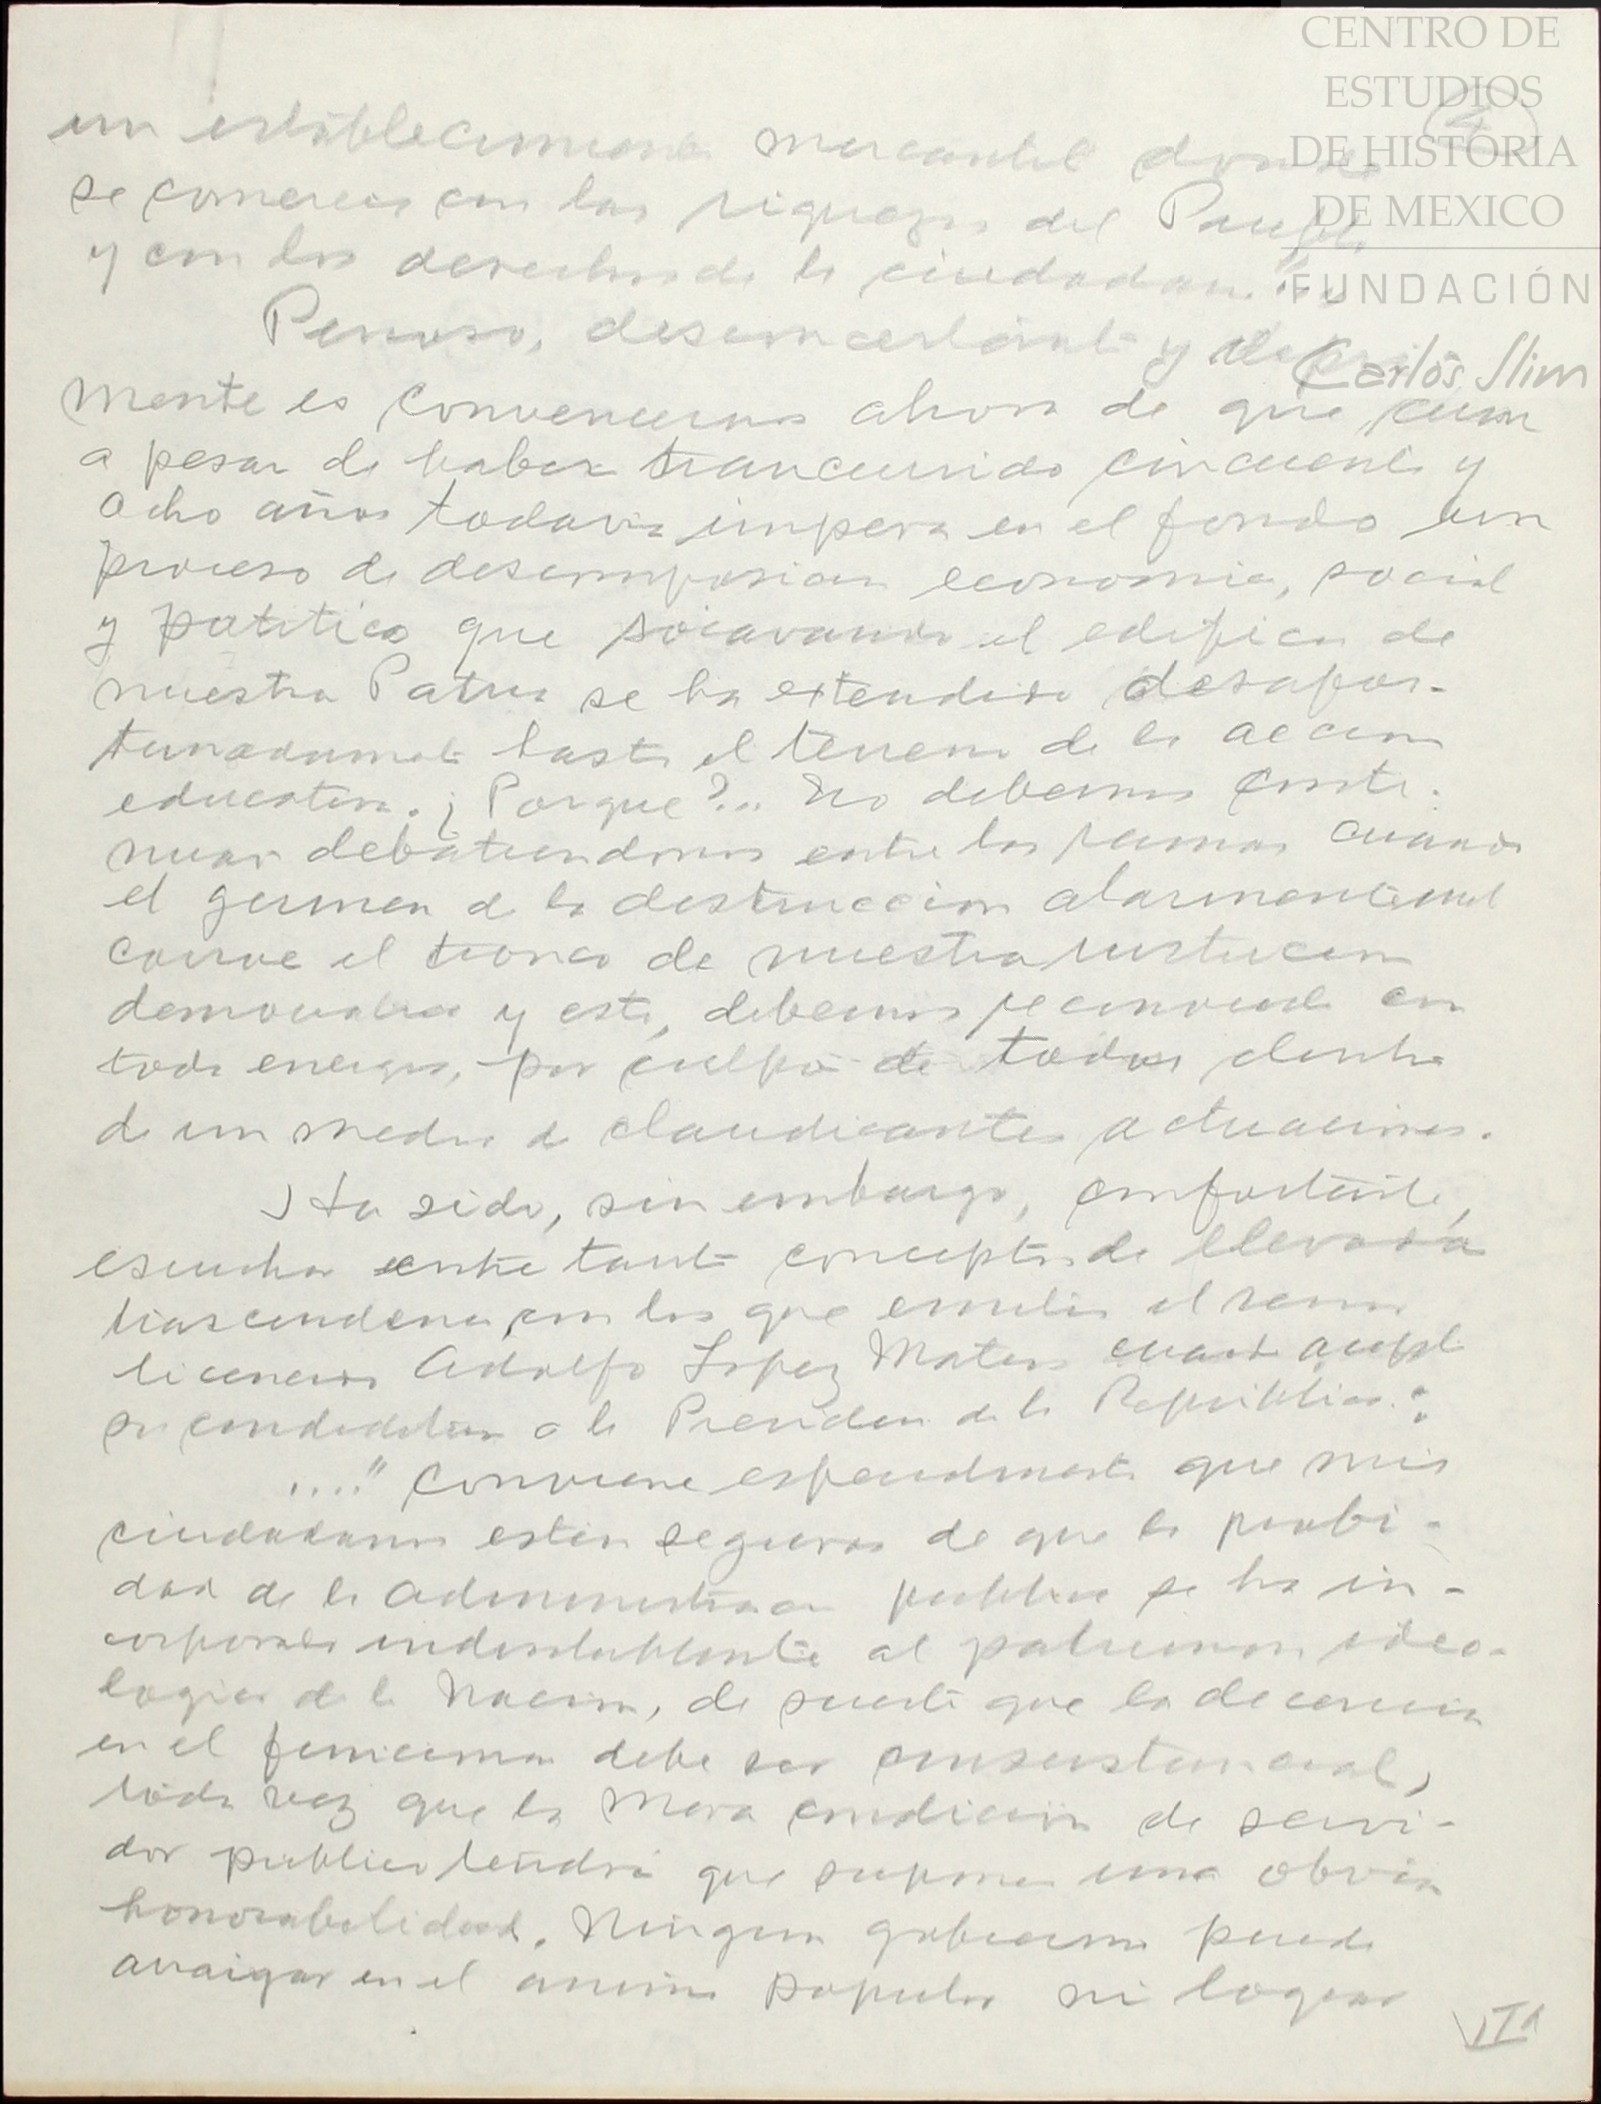 CENTRO DE
ESTUDIOS
DE HISTORIA
DE MEXICO
FUNDACIÓN
Carlos Slim
4
un establecimiento mercantil donde
se comercia con las riquezas del Pueblo
y con los derechos de la ciudadania."..
Penoso, desconcertante y
mente es convencernos ahora de que, aun
a pesar de haber trancurrido cincuenta y
ocho años todavia impera en el fondo un
proceso de descomposicion economica, social
y politica que socavando el edificio de
nuestra Patria se ha extendido desafor-
tunadamente hasta el terreno de la accion
educativa. ¿Porque?.. No debemos conti-
nuar debatiendonos entre las ramas cuando
el germen de la destruccion alarmantemente
corroe el tronco de nuestra institucion
democratica y esto, debemos reconocerlo con
toda energia, por culpa de todos dentro
de un medio de claudicantes actuaciones.
Ha sido, sin embargo, confortante,
escuchar entre tanto conceptos de elevada
trascendencia con los que emitio el señor
licenciado Adolfo Lopez Mateos cuando acepto
su candidatura a la Presidencia de la Republica:
...." Conviene especialmente que mis
ciudadanos esten seguros de que la probi-
dad de la administracion publica se ha in-
corporado indisolublemente al patrimonio ideo-
logico de la Nacion, de suerte que la decencia
en el funcionario debe ser consustancial,
toda vez que la mera condicion de servi-
dor publico tendra que suponer una obvia
honorabilidad. Ningun gobierno puede
arraigar en el animo popular ni lograr